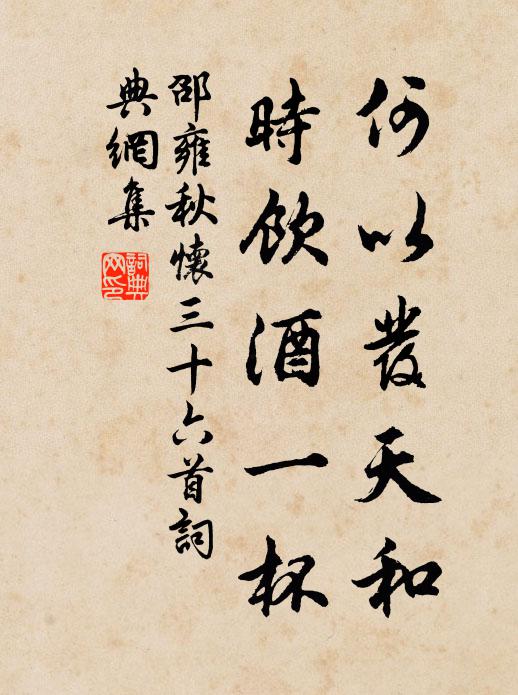 何以發天和
時飲酒一杯
邵雍秋懷三十六首詞
典網集
詞典網印